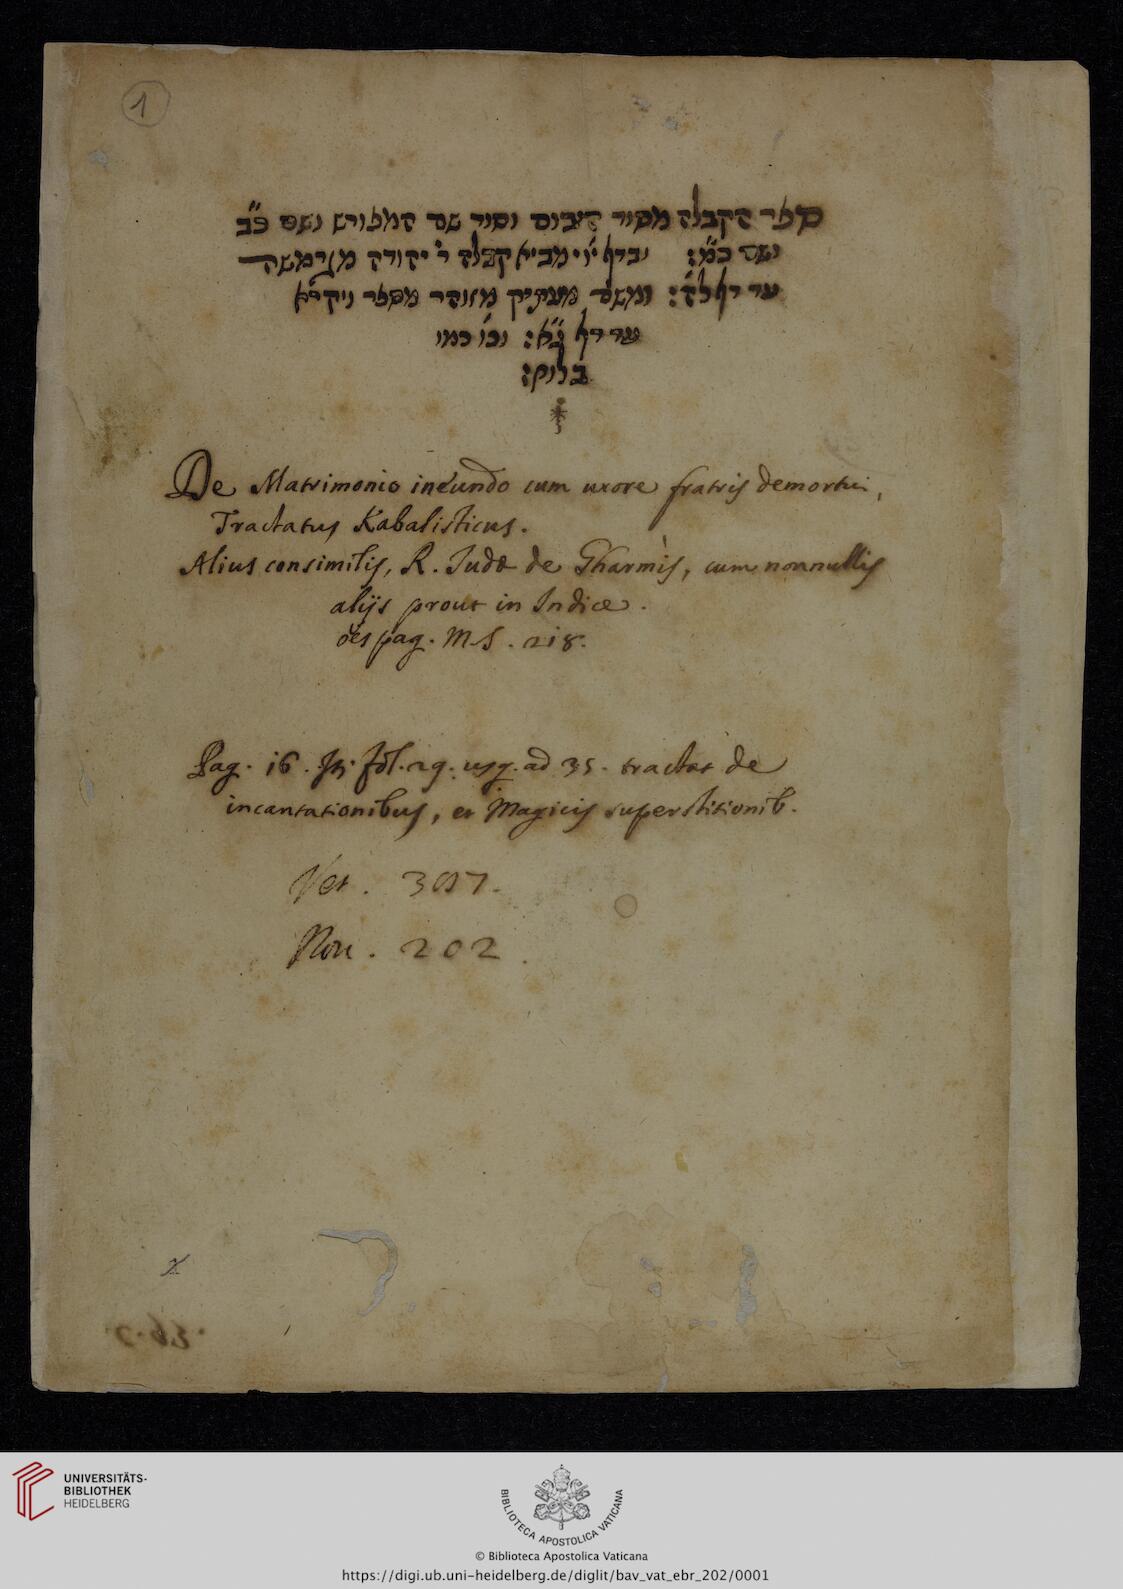 1
ספר הקבלה מסוד היבום וסוד שם המפורש ושם כ״ב
ושם כ״מ: ובדף י״ו מביא קבלה ר׳ יהודה
עד דף ל״ה: ומשם מעתיק מזוהר מספר ויקרא
עד דף
בלוח:
De Matrimonio ineundo cum uxore fratris demortui,
Tractatus Kabalisticus.
Alius consimilis, R. Judæ de Gharmìs, cum nonnullis
alijs prout in Indice.
oẽs pag. M.S. 218.
Pag. 16. fol. 29. usq. ad 35. tractat de
incantationibus, et Magicis superstitionib.
Vet.
Nou. 202.
UNIVERSITÄTS-
BIBLIOTHEK
HEIDELBERG
BIBLIOTECA APOSTOLICA VATICANA
© Biblioteca Apostolica Vaticana
https://digi.ub.uni-heidelberg.de/diglit/bav_vat_ebr_202/0001